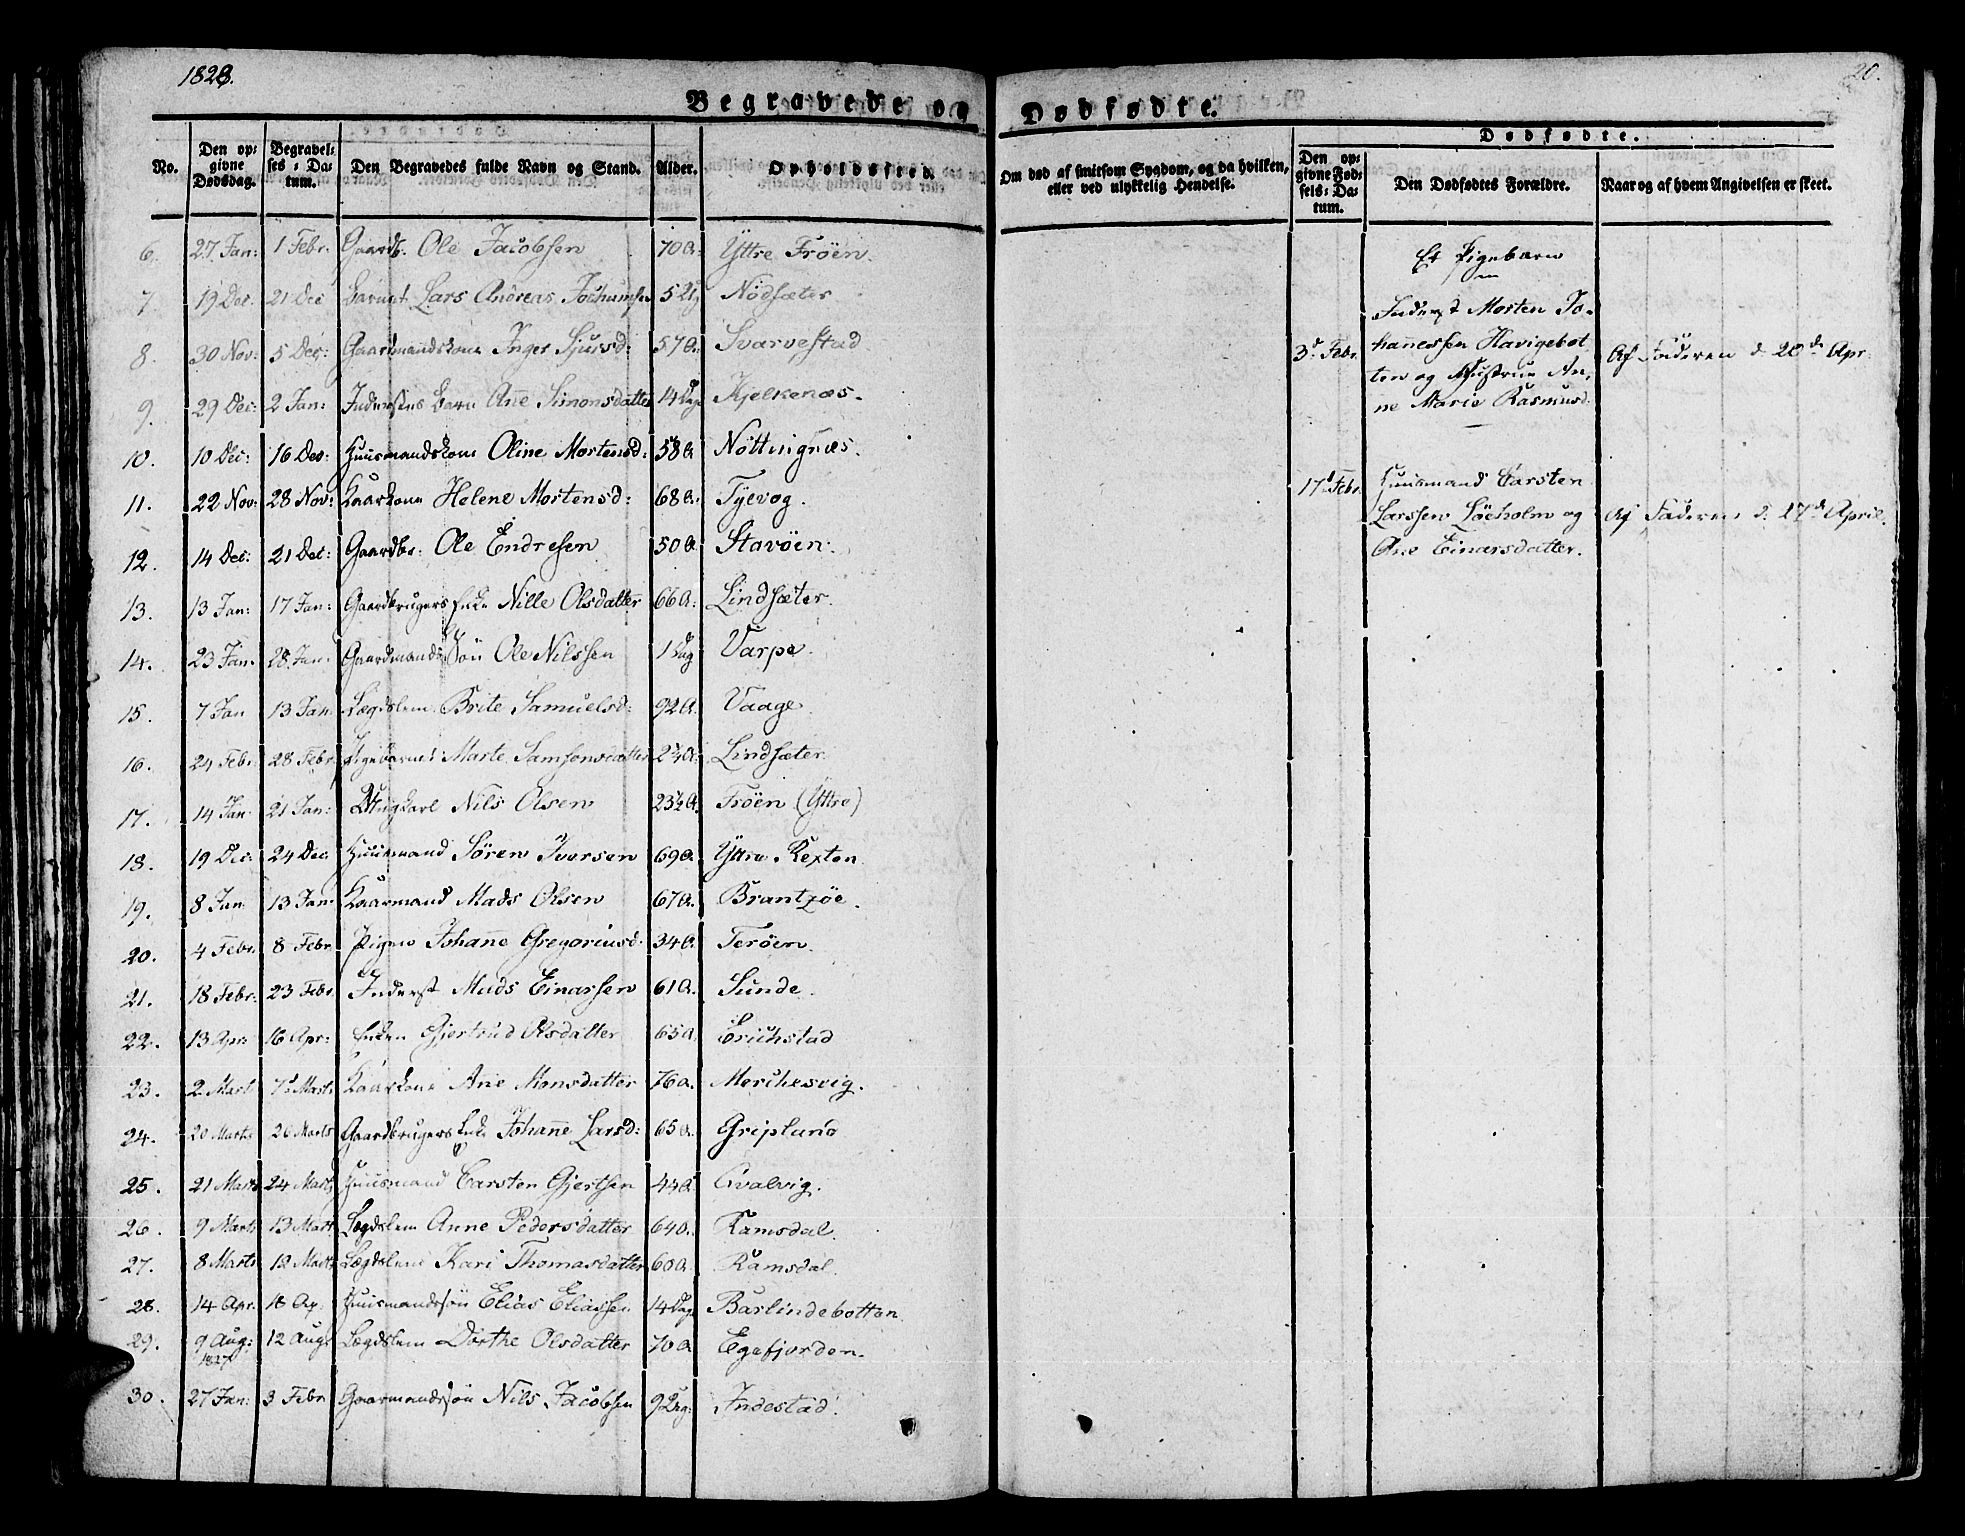 1828.
20.
Begravede og Dødfødte.
Dødfødte.
No.
Den op=
givne
Dødsdag.
Begravel=
ses = Da=
tum.
Den Begravedes fulde Navn og Stand.
Alder.
Opholdssted.
Om død af smitsom Sygdom, og da hvilken,
eller ved ulykkelig Hendelse.
Den op=
givne Fød=
sels = Da=
tum.
Den Dødfødtes Forældre.
Naar og af hvem Angivelsen er skeet.
6. 27 Jan: 1 Febr. Gaardb. Ole Jacobsen 70 A: Yttre Fröen.
7. 19 Dec. 21 Dec Barnet Lars Andreas Jochumsen 5 Nödsæter
8. 30 Nov: 5 Dec: Gaardmandskone Inger Sjursd: 57 A: Svarvestad
9. 29 Dec: 2 Jan: Inderstens Barn Ane Simonsdatter 14 Dag Kjelkenæs.
10. 10 Dec: 16 Dec: Huusmandskone Oline Mortensd: 58 A Nöttingnæs.
11. 22 Nov: 28 Nov: Kaarkone Helene Mortensd: 68 A: Tyevog.
12. 14 Dec: 21 Dec: Gaardbr: Ole Endresen 50 A Stavöen.
13. 13 Jan: 17 Jan: Gaardbrugers Enke Nille Olsdatter 66 A: Lindsæter.
14. 23 Jan: 28. Jan: Gaardmandssön Ole Nilssen 1 Dag Varpe.
15. 7 Jan 13 Jan Lægdslem Brite Samuelsd: 92 A. Vaage.
16. 24 Febr: 28 Febr. Pigebarnet Marte Samsonsdatter 2¼ A: Lindsæter.
17. 14 Jan 21 Jan: Ungkarl Nils Olsen 23½ A. Fröen (Yttre)
18. 19 Dec: 24 Dec. Huusmand Sören Iversen 69 A. Yttre Rexten.
19. 8 Jan 13 Jan: Kaarmand Mads Olsen 67 A. Brantzöe.
20. 4 Febr. 8 Febr. Pigen Johanne Gregoriusd. 34 A. Teröen.
21. 18 Febr: 23 Febr. Inderst Mads Einarsen 61 A. Sunde.
22. 13 Apr: 16 Apr: Enken Gjertrud Olsdatter 65 A Erichstad
23. 2 Mart 7d Marts Kaarkone Ane Monsdatter 76 A. Merchesvig.
24. 20 Marts 26 Marts Gaardbrugers Enke Johanne Larsd: 65 A. Gripland
25. 21 Marts 24 Marts Huusmand Carsten Gjertsen 44 A. Qvalvig.
26. 9 Marts 13 Mart Lægdslem Anne Pedersdatter 64 A. Ramsdal.
27. 8 Marts 12 Marts Lægdslem Kari Thomasdatter 60 A. Ramsdal.
28. 14 Apr. 18 Ap. Huusmandssön Elias Eliassen 14 Dag. Barlindebotten
29. 9 Aug: 1827 12 Aug. Lægdslem Dorthe Olsdatter 70 A Egefjorden.
30. 27 Jan: 3 Febr Gaarmandssön Nils Jacobsen 9 Dag: Indestad.
Et Pigebarn
Inderst Morten Jo=
3d Febr. hanessen Havigebot Af Faderen d. 20de Apr.
ten og Hustrue An,
ne Marie Rasmusd.
17d Febr. Huusmand Carsten
Larssen Löeholm og Af Faderen d. 27de April.
Ane Einarsdatter.